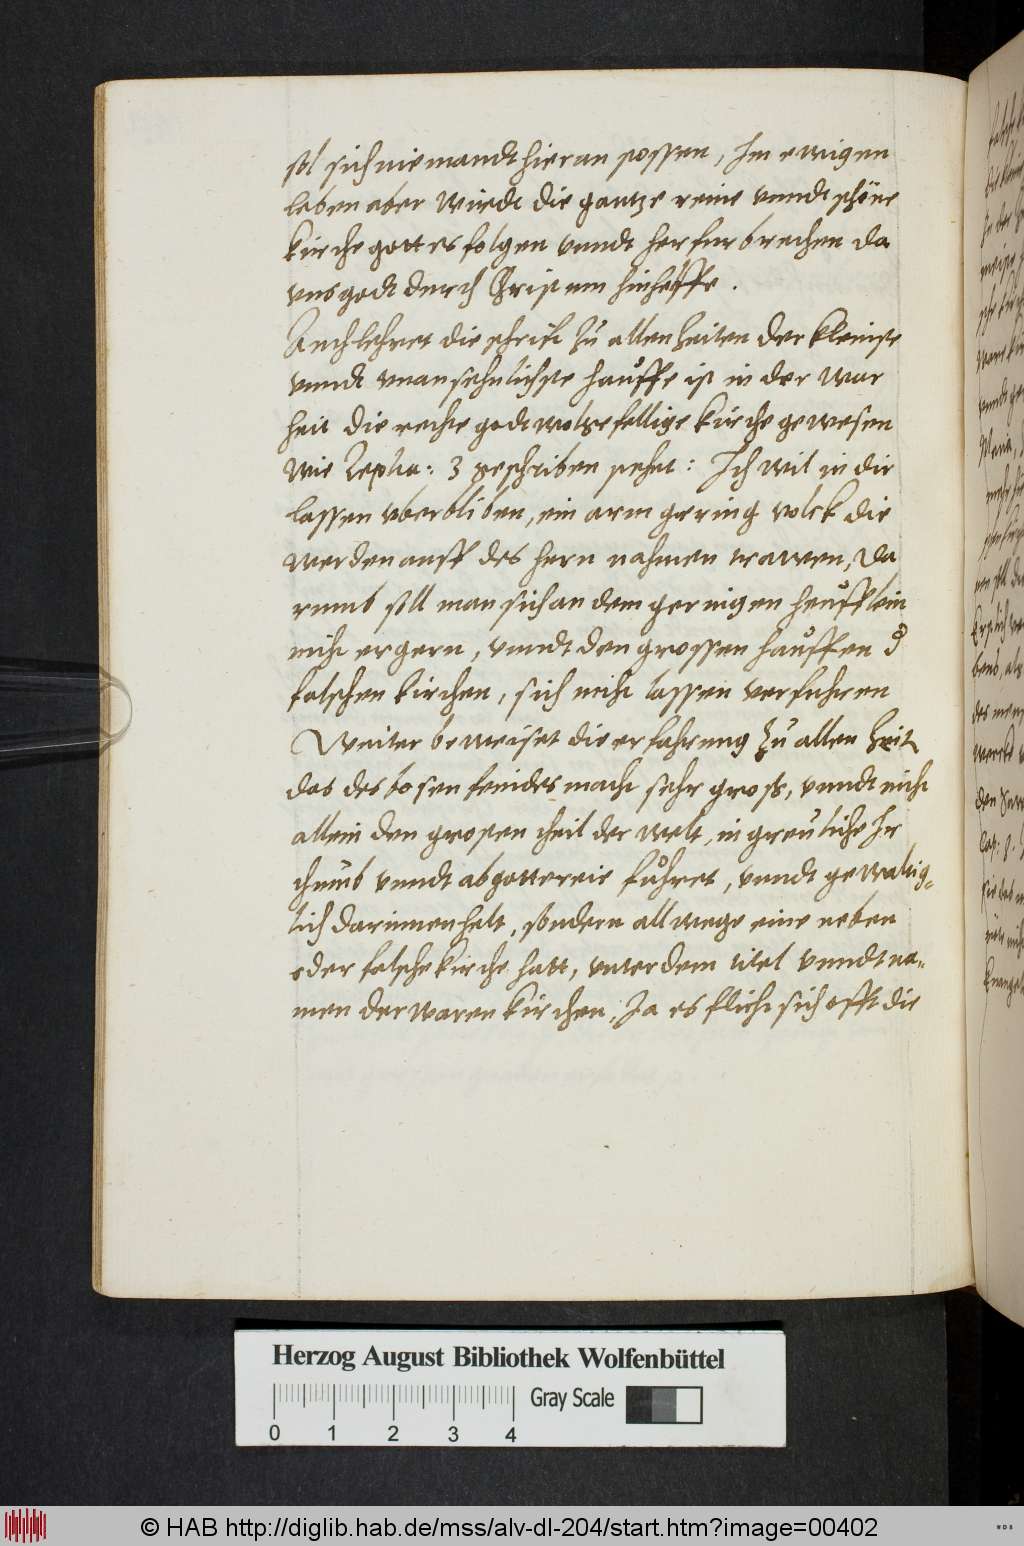 sol sich niemandt hieran stossen, Im ewigen
leben aber wirdt die gantze reine vnndt schöne
kirche gottes folgen vnndt herfur brechen da
vns godt durch Christum hinhelffe.
Auch lehret die schrift zu allen zeiten der kleinste
vnndt vnansehnlichste hauffe ist in der war
heit die rechte godt wolgefellige kirche gewesen
wie Zepha: 3 geschriben stehet: Ich wil in dir
lassen vberbliben, ein arm gering volck die
werden auff des hern nahmen trawen, Da
rumb soll man sich an dem geringen heufflein
nicht ergern, vnndt den grossen hauffen d
falschen kirchen, sich nicht lassen verfuhren
Weiter beweiset die erfahrung zu allen Zeit
das des bosen feindes macht sehr gross, vnndt nicht
allein den grosten theil der welt, in greuliche Ir
thumb vnndt abgottereie fuhret, vnndt gewaltig-
lich darinnen helt, sondern allwege eine neben
oder falsche kirche hatt, vnter dem titel vnndt na-
men der waren kirchen, Ja es flicht sich offt die
Herzog August Bibliothek Wolfenbüttel
Gray Scale
0 1 2 3 4
© HAB http://diglib.hab.de/mss/alv-dl-204/start.htm?image=00402